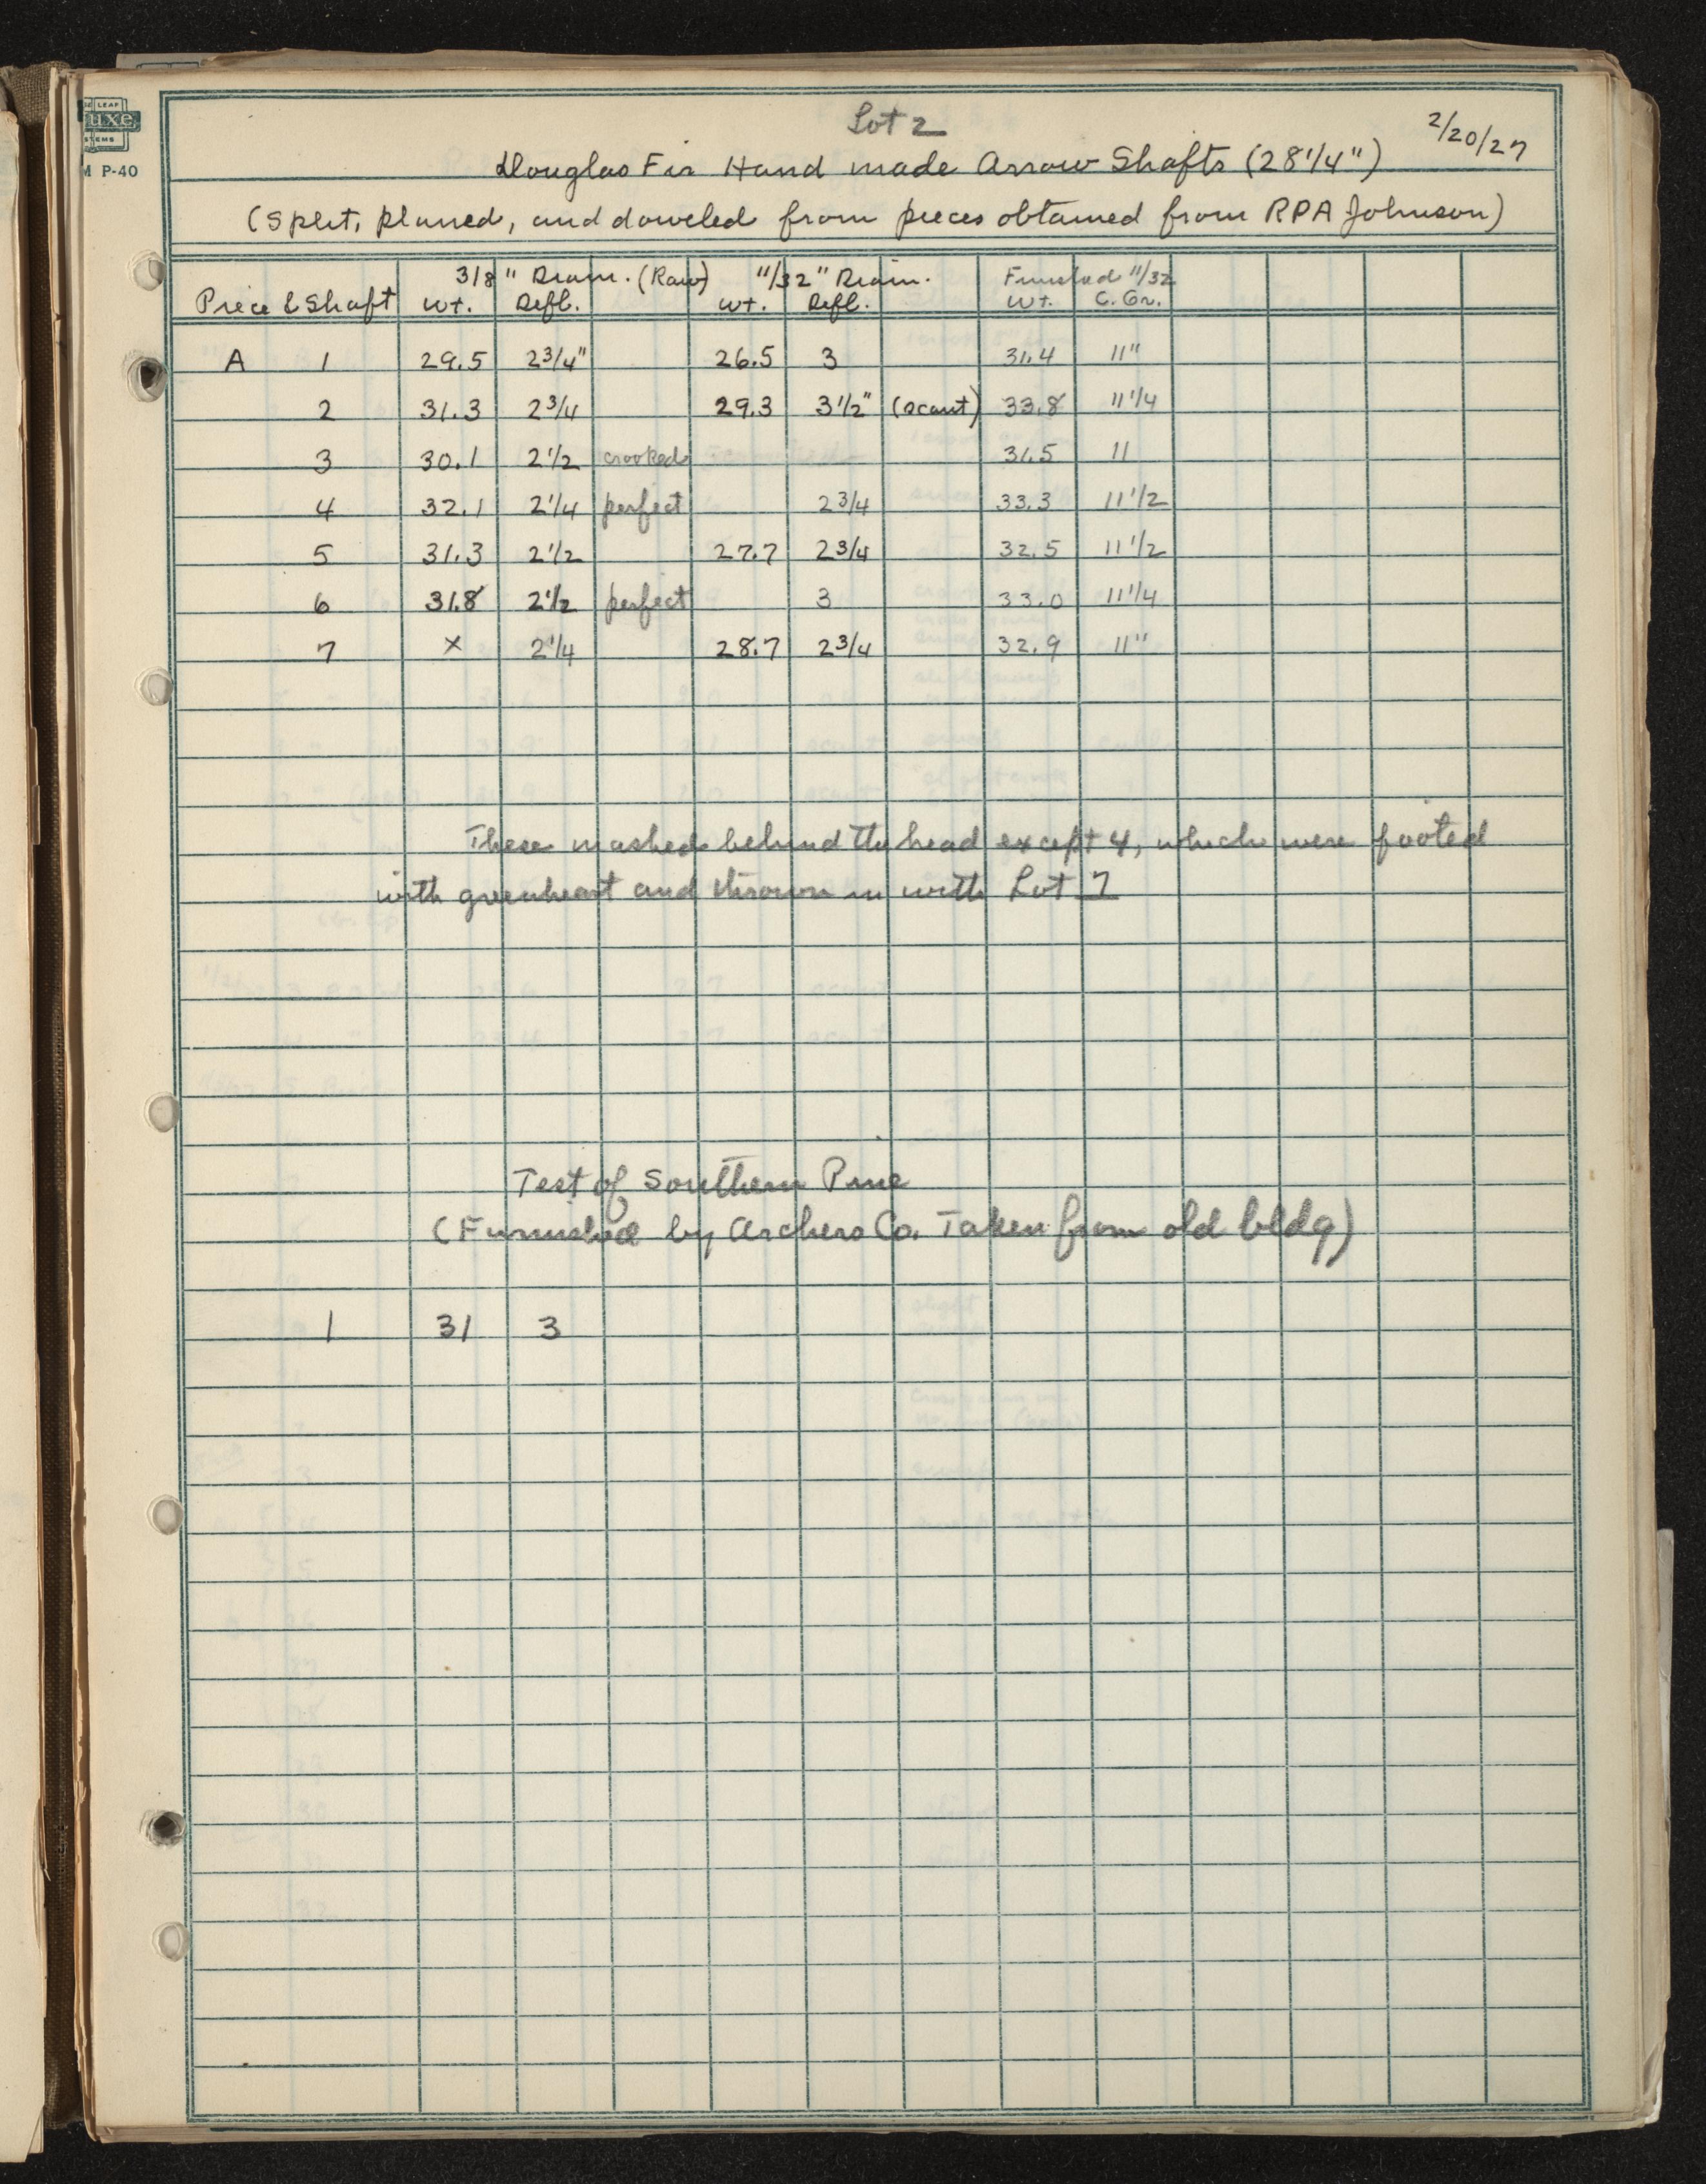 Lot 2
2/20/27
Douglas Fir Hand made Arrow Shafts (28 1/4")
(Split, planed, and doweled from pieces obtained from RPA Johnson)
uxe
M P-40
3/8" Diam. (Raw) 11/32" Diam. Finished 11/32
Piece & Shaft Wt. Defl. Wt. Defl. Wt. C. Gr.
A 1 29.5 2 3/4" 26.5 3 31.4 11"
2 31.3 2 3/4 29.3 3 1/2" (scant) 33.8 11 1/4
3 30.1 2 1/2 crooked 31.5 11
4 32.1 2 1/4 perfect 2 3/4 33.3 11 1/2
5 31.3 2 1/2 27.7 2 3/4 32.5 11 1/2
6 31.8 2 1/2 perfect 3 33.0 11 1/4
7 x 2 1/4 28.7 2 3/4 32.9 11"
These mashed behind the head except 4, which were footed
with greenheart and thrown in with Lot 7
Test of Southern Pine
(Furnished by Archers Co. Taken from old bldg)
1 31 3